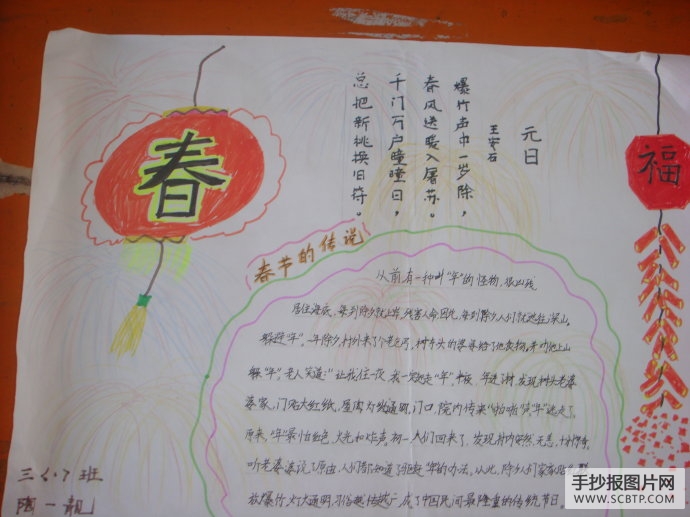 春
元日
王安石
爆竹声中一岁除，
春风送暖入屠苏。
千门万户曈曈日，
总把新桃换旧符。
福
春节的传说
从前有一种叫“年”的怪物，
居住海底，每到除夕就上岸，伤害人命因此，每到除夕人们就逃往深山，
躲避“年”，一年除夕村外来了个老乞丐，村东头的婆婆给了他食物，并劝他上山
躲“年”，老人笑道：“让我住一夜，我一定赶走“年”，半夜，年进了村，发现村头老婆
婆家，门贴大红纸，屋内灯烛通明，门口，院内传来“啪啦”“年”逃走了，
原来，“年”最怕红色，火光和炸声，初一人们回来了，发现村内安然无恙，
听老婆婆说了原由，人们都知道了驱赶“年”的办法，从此，除夕人们家家贴
放爆竹，灯火通明，习俗越传越广，成了中国民间最隆重的传统节日。
三（1）班
陶一靓
手抄报图片网
WWW.SCBTP.COM